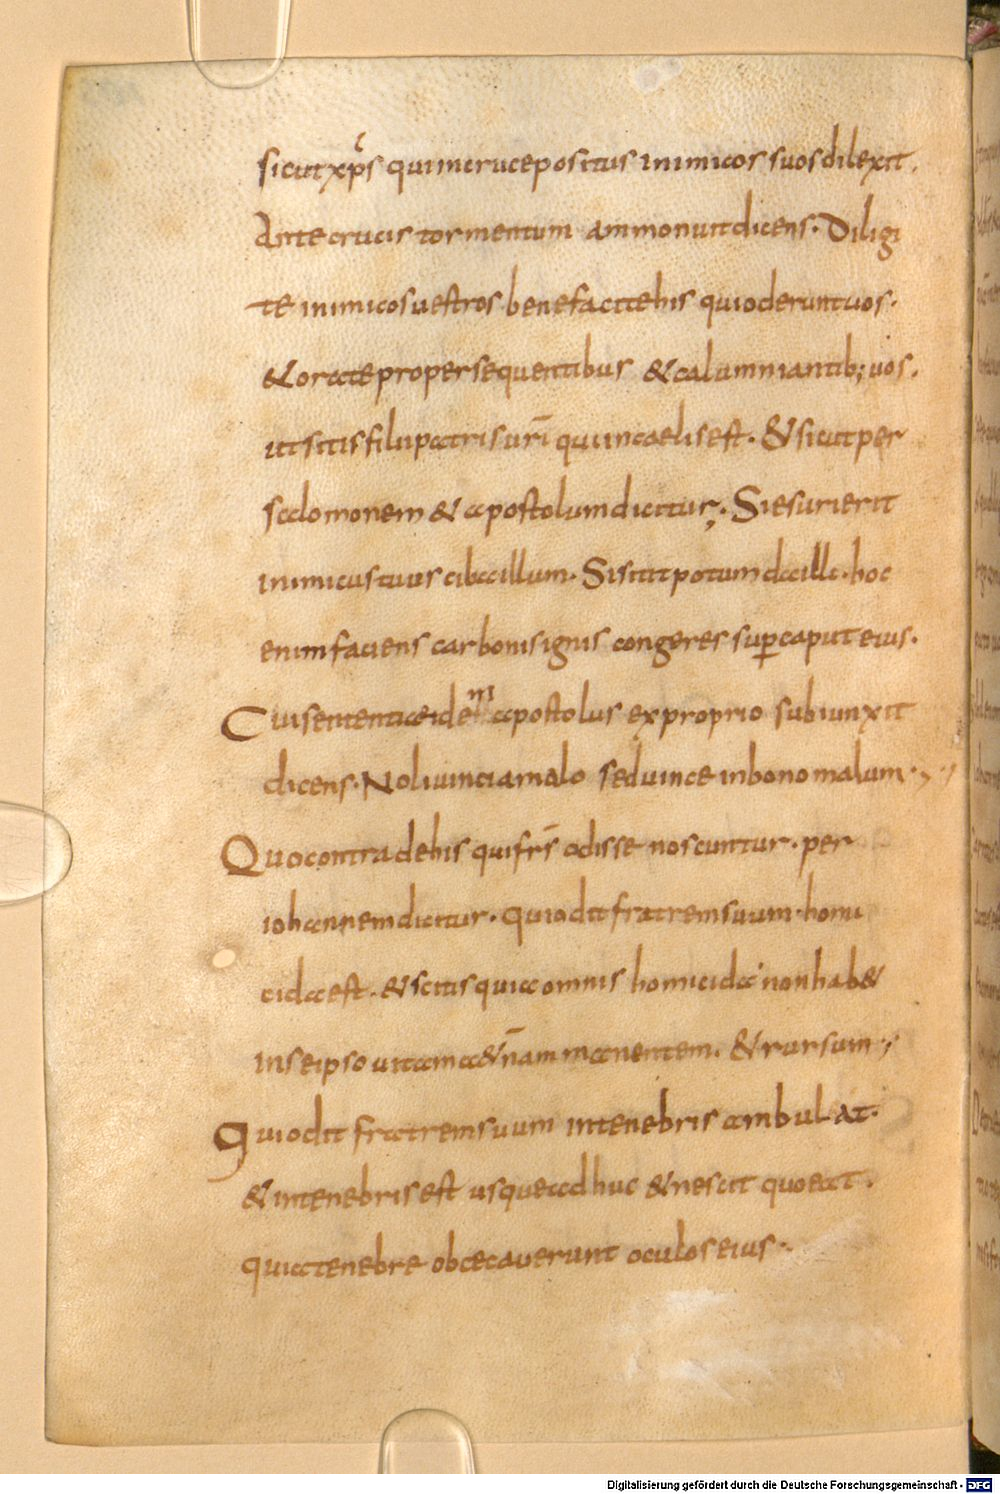 sicut xp̄s qui in cruce positus inimicos suos dilexit.
Ante crucis tormentum ammonuit dicens. Diligi
te inimicos uestros benefacite his qui oderunt uos.
& orate pro persequentibus & calumniantib; uos.
ut sitis filii patris ur̄i qui in caelis est. & sicut per
salomonem & apostolum dicitur. Si esurierit
inimicus tuus ciba illum. Si sitit potum da illi. hoc
enim faciens carbonis ignis congeres sup̄ caput eius.
Cui sententiae idem apostolus ex proprio subiunxit
dicens. Noli uinci a malo sed uince in bono malum.
Quo contra de his qui fr̄s odisse noscuntur. per
iohannem dicitur. qui odit fratrem suum. homi
cida est. & scitis quia omnis homicida non hab&
in seipso uitam a&̄nam manentem. & rursum.
Qui odit fratrem suum in tenebris ambulat.
& in tenebris est usque adhuc & nescit quo eat.
quia tenebre obcecauerunt oculos eius.
Digitalisierung gefördert durch die Deutsche Forschungsgemeinschaft - DFG